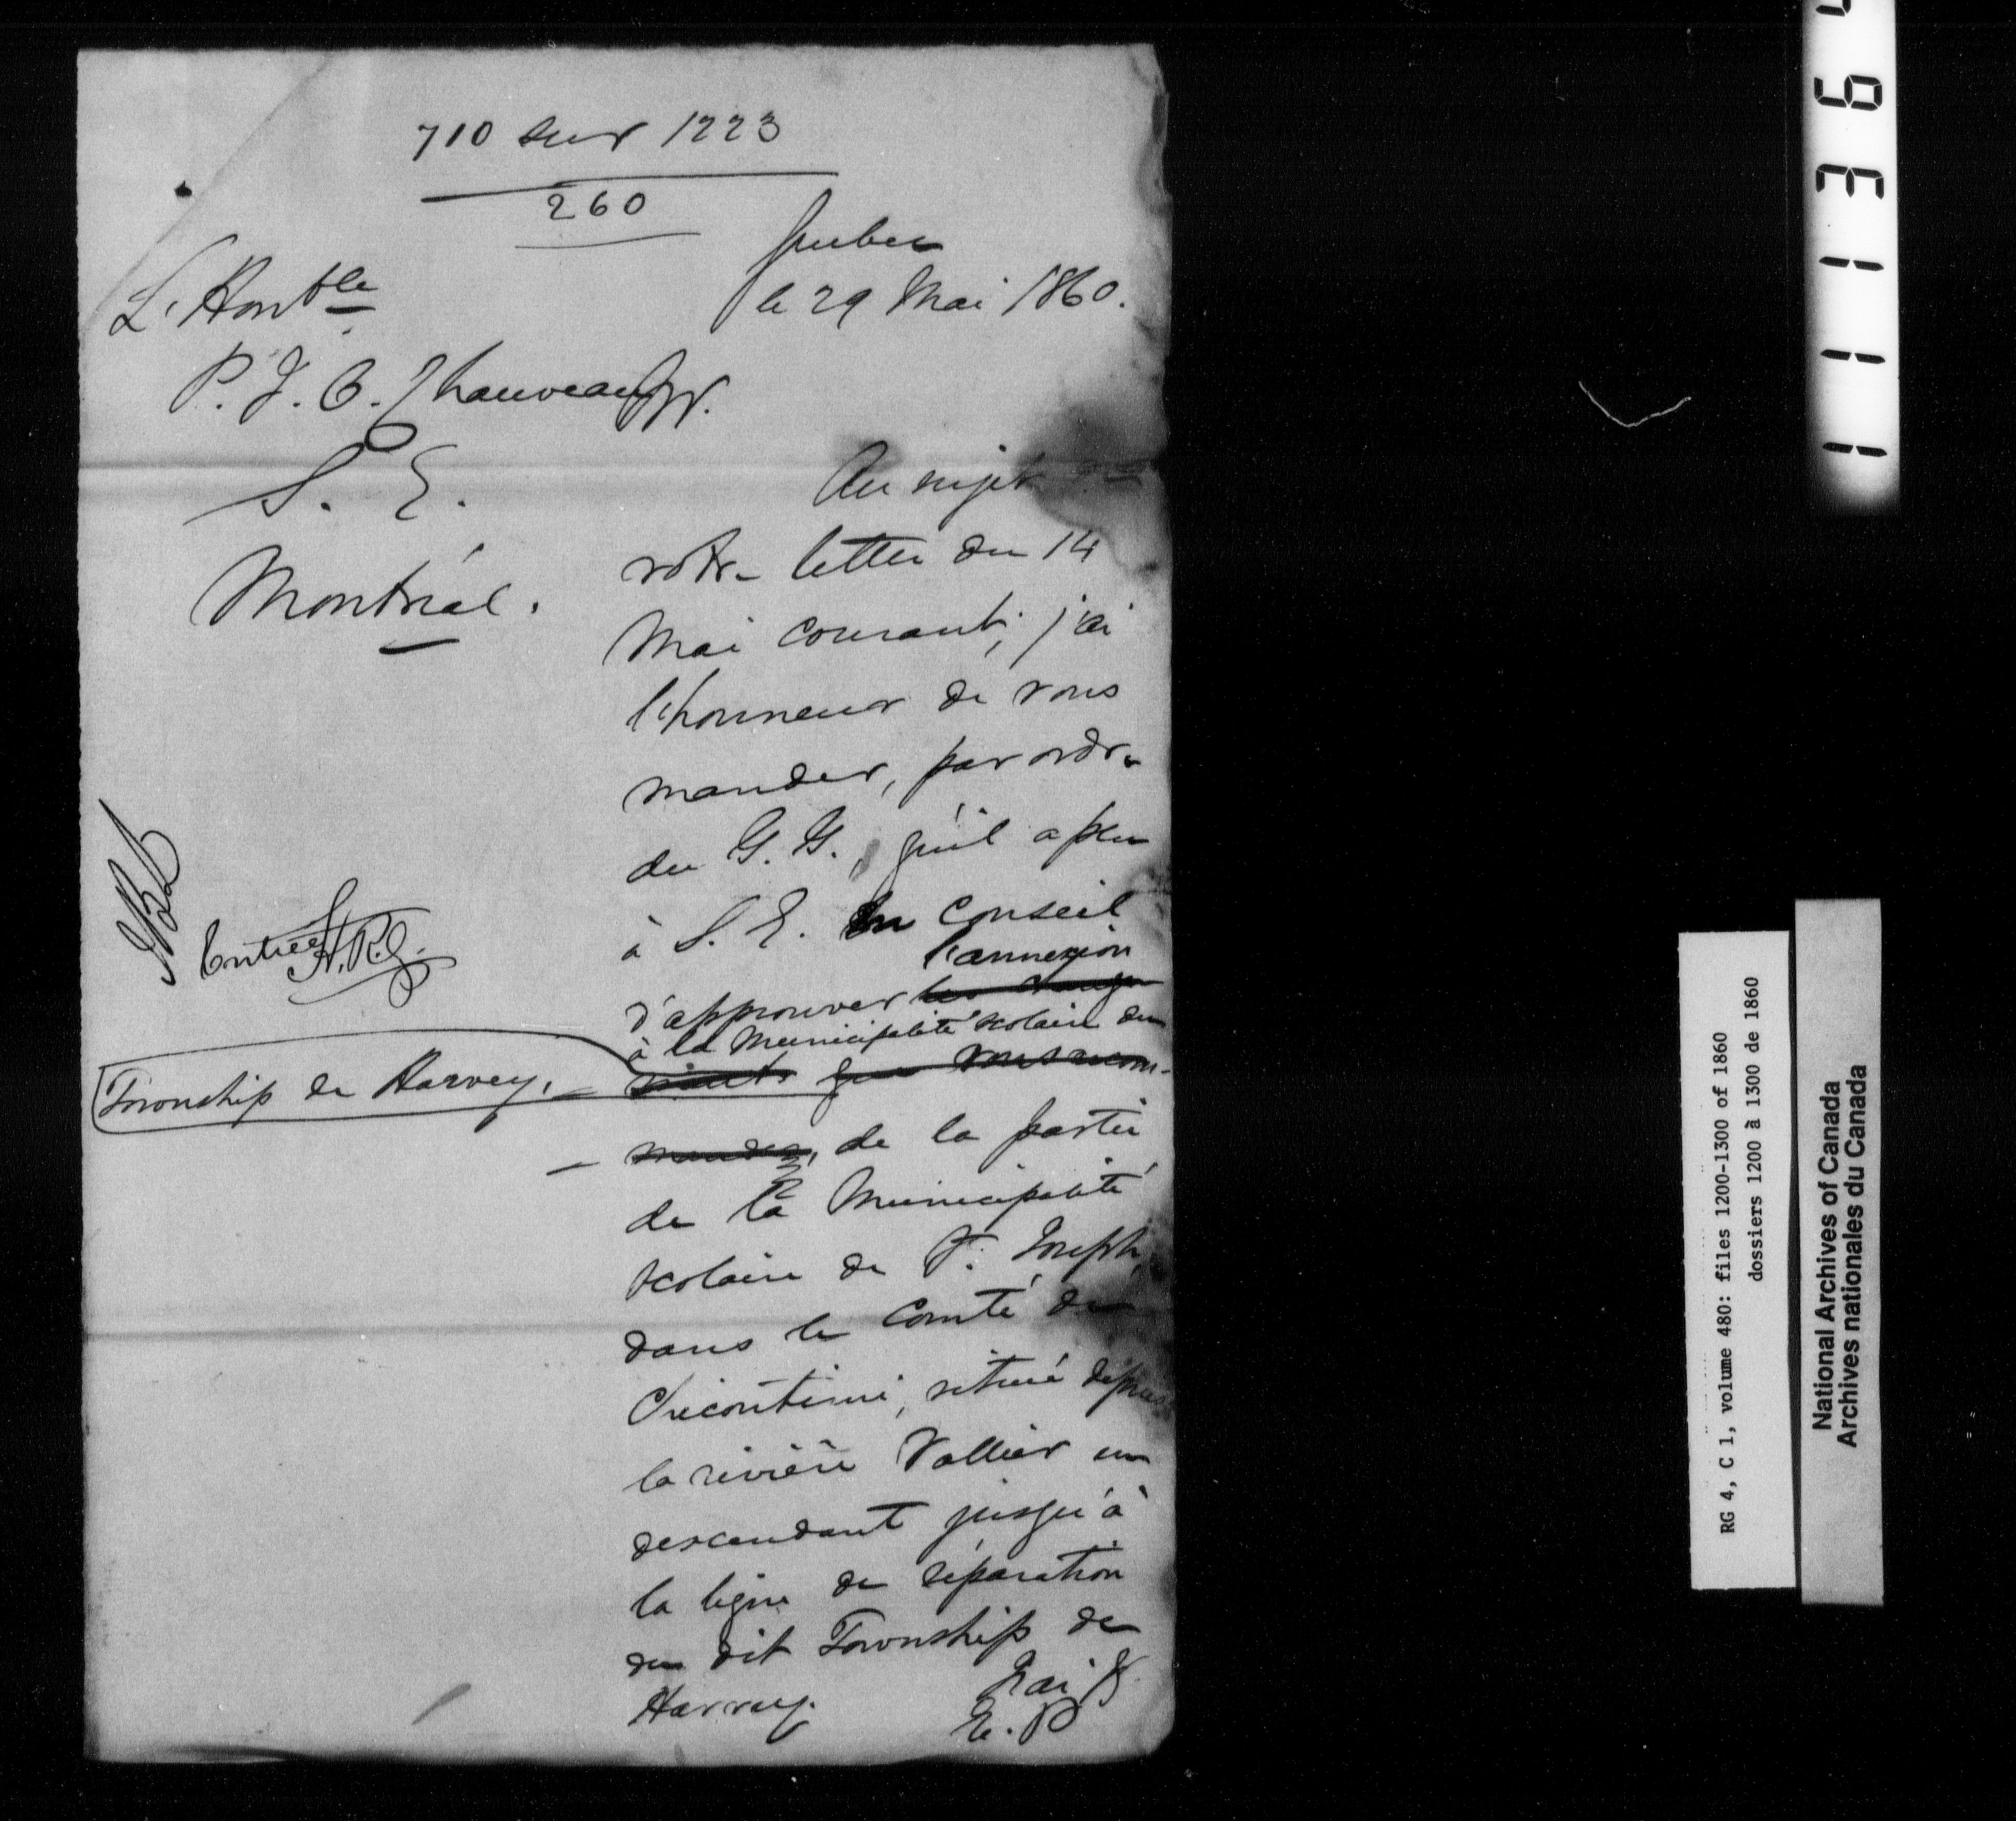 710 sur 1223
260
Quebec
le 29 Mai 1860.
L'Honble
P. J. O. Chauveau
S. E.
Montréal.
Au sujet de
votre lettre du 14
Mai courant, j'ai
l'honneur de vous
mander, par ordre
du G. G., qu'il a plu
à S. E. en Conseil
l'annexion
d'approuver les change
à la Municipalité scolaire du
Township de Harvey,
ments que vous recom-
mandez, de la partie
de la Municipalité
scolaire de St. Joseph,
dans le Comté de
Chicoutimi, situé depuis
la rivière Vallier en
descendant jusqu'à
la ligne de séparation
du dit Township de
Harvey.
J'ai &.
E. P
Entrée
RG 4, C 1, volume 480: files 1200-1300 of 1860
dossiers 1200 à 1300 de 1860
National Archives of Canada
Archives nationales du Canada
1 1 1 3 6